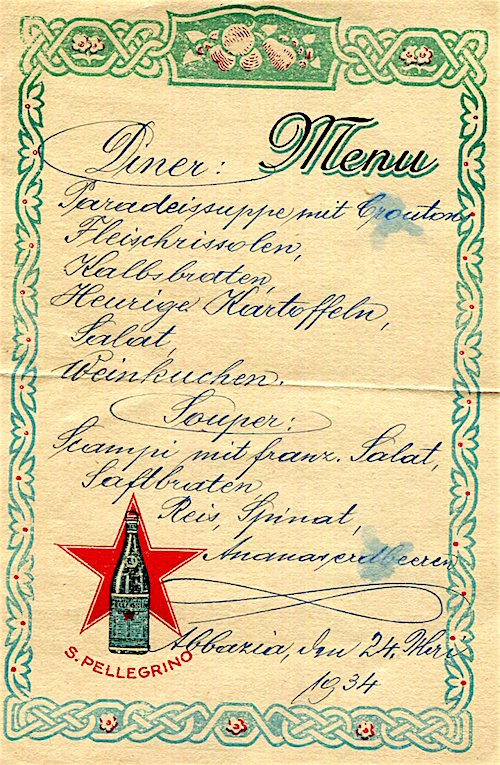 Menu
Diner:
Paradeissuppe mit Crouton
Fleischrissolen,
Kalbsbraten,
Heurige Kartoffeln,
Salat,
Weinkuchen.
Souper:
Scampi mit franz. Salat,
Saftbraten,
Reis, Spinat,
Ananaserdbeeren
S. PELLEGRINO
Abbazia, den 24.
1934